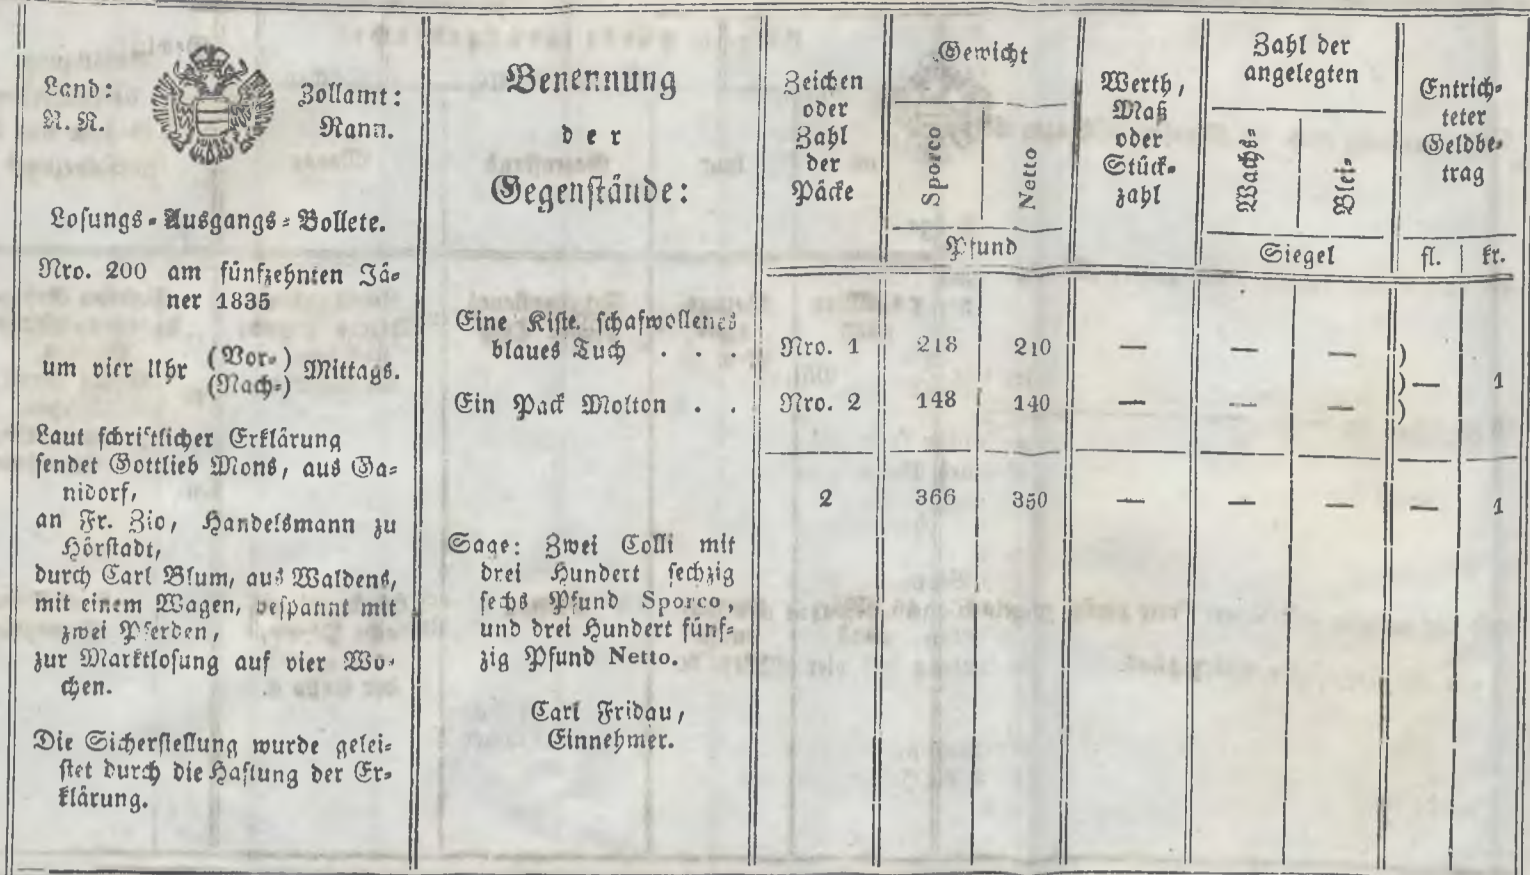 Land: Zollamt:
N. N. Rann.
Losungs-Ausgangs-Bollete.
Nro. 200 am fünfzehnten Jä-
ner 1835
um vier Uhr (Vor-) Mittags.
(Nach-)
Laut schriftlicher Erklärung
sendet Gottlieb Mons, aus Ga-
nidorf,
an Fr. Zio, Handelsmann zu
Hörstadt,
durch Carl Blum, aus Waldens,
mit einem Wagen, bespannt mit
zwei Pferden,
zur Marktlosung auf vier Wo-
chen.
Die Sicherstellung wurde gelei-
stet durch die Haftung der Er-
klärung.
Benennung
der
Gegenstände:
Zeichen
oder
Zahl
der
Päcke
Gewicht
Sporco
Netto
Pfund
Werth,
Maß
oder
Stück-
zahl
Zahl der
angelegten
Wachs-
Blei-
Siegel
Entrich-
teter
Geldbe-
trag
fl. kr.
Eine Kiste schafwollenes
blaues Tuch . . . Nro. 1 218 210 — — — )
)— 1
Ein Pack Molton . . Nro. 2 148 140 — — — )
2 366 350 — — — — 1
Sage: Zwei Colli mit
drei Hundert sechzig
sechs Pfund Sporco,
und drei Hundert fünf-
zig Pfund Netto.
Carl Fridau,
Einnehmer.